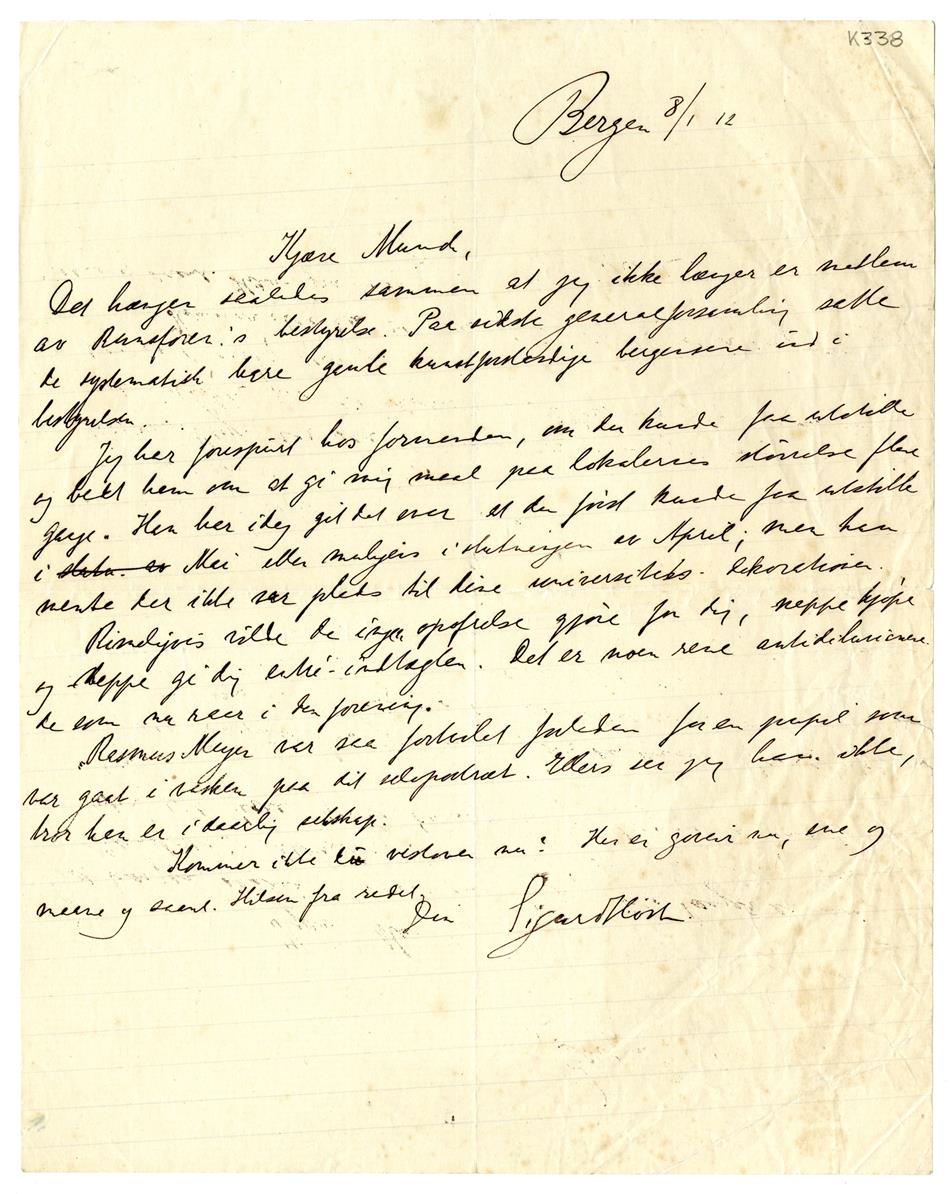 K338
Bergen 8/1 12
Kjære Munch,
Det hænger saaledes sammen at jeg ikke længer er medlem
av Kunstforen:s bestyrelse. Paa sidste generalforsamling satte
de systematisk bare gamle kunstforstandige bergensere ind i
bestyrelsen.
Jeg har forespurt hos formanden, om du kunde faa utstille
og bedt ham om at gi mig maal paa lokalernes størrelse flere
gange. Han har idag git det svar at du først kunde faa utstille
i slutn. av Mai eller muligens i slutningen av April; men han
mente der ikke var plads til dine universitets-dekorationer.
Rimeligvis vilde de ingen opofrelse gjøre for dig, neppe kjøpe
og neppe gi dig entré-indtægten. Det er noen rene antidiluvianere
de som nu raar i den forening.
Rasmus Meyer var saa fortvilet forleden for en pupil som
var gaat i vasken paa dit selvportræt. Ellers ser jeg ham ikke,
tror han er i daarlig selskap.
Kommer ikke du vestover nu? Her er greit nu, sne og
maane og saant. Hilsen fra
Din Sigurd Høst